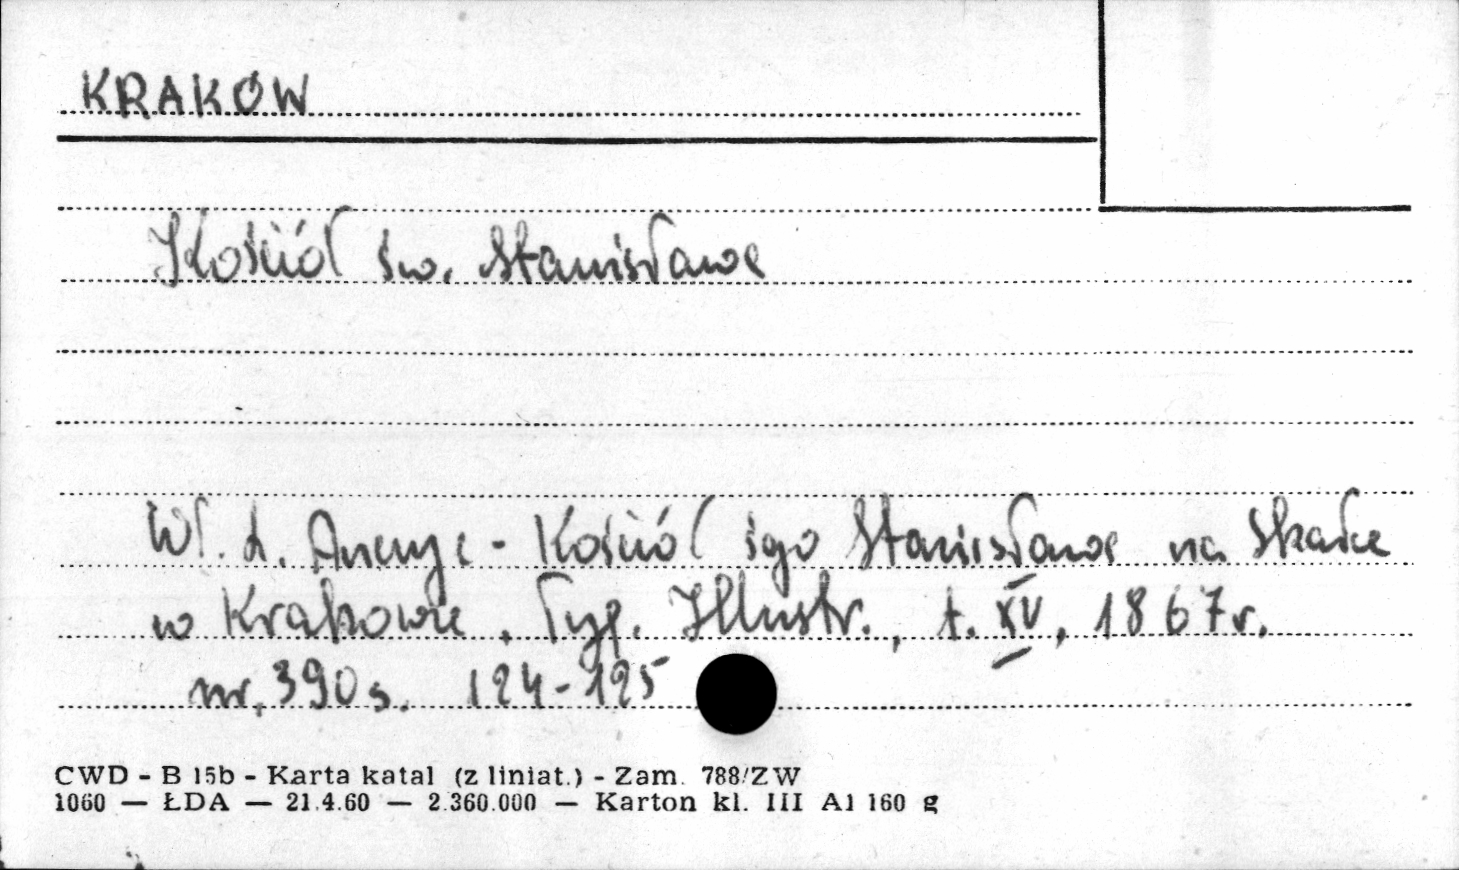 KRAKÓW
Kościół św. Stanisława
Wł. L. Anczyc - Kościół śgo Stanisława na Skałce
w Krakowie. Tyg. Illustr., t. XV, 1867 r.
nr. 390 s. 124-125
CWD - B 15b - Karta katal (z liniat.) - Zam. 788/ZW
1060 — ŁDA — 21.4.60 — 2.360.000 — Karton kl. III A1 160 g